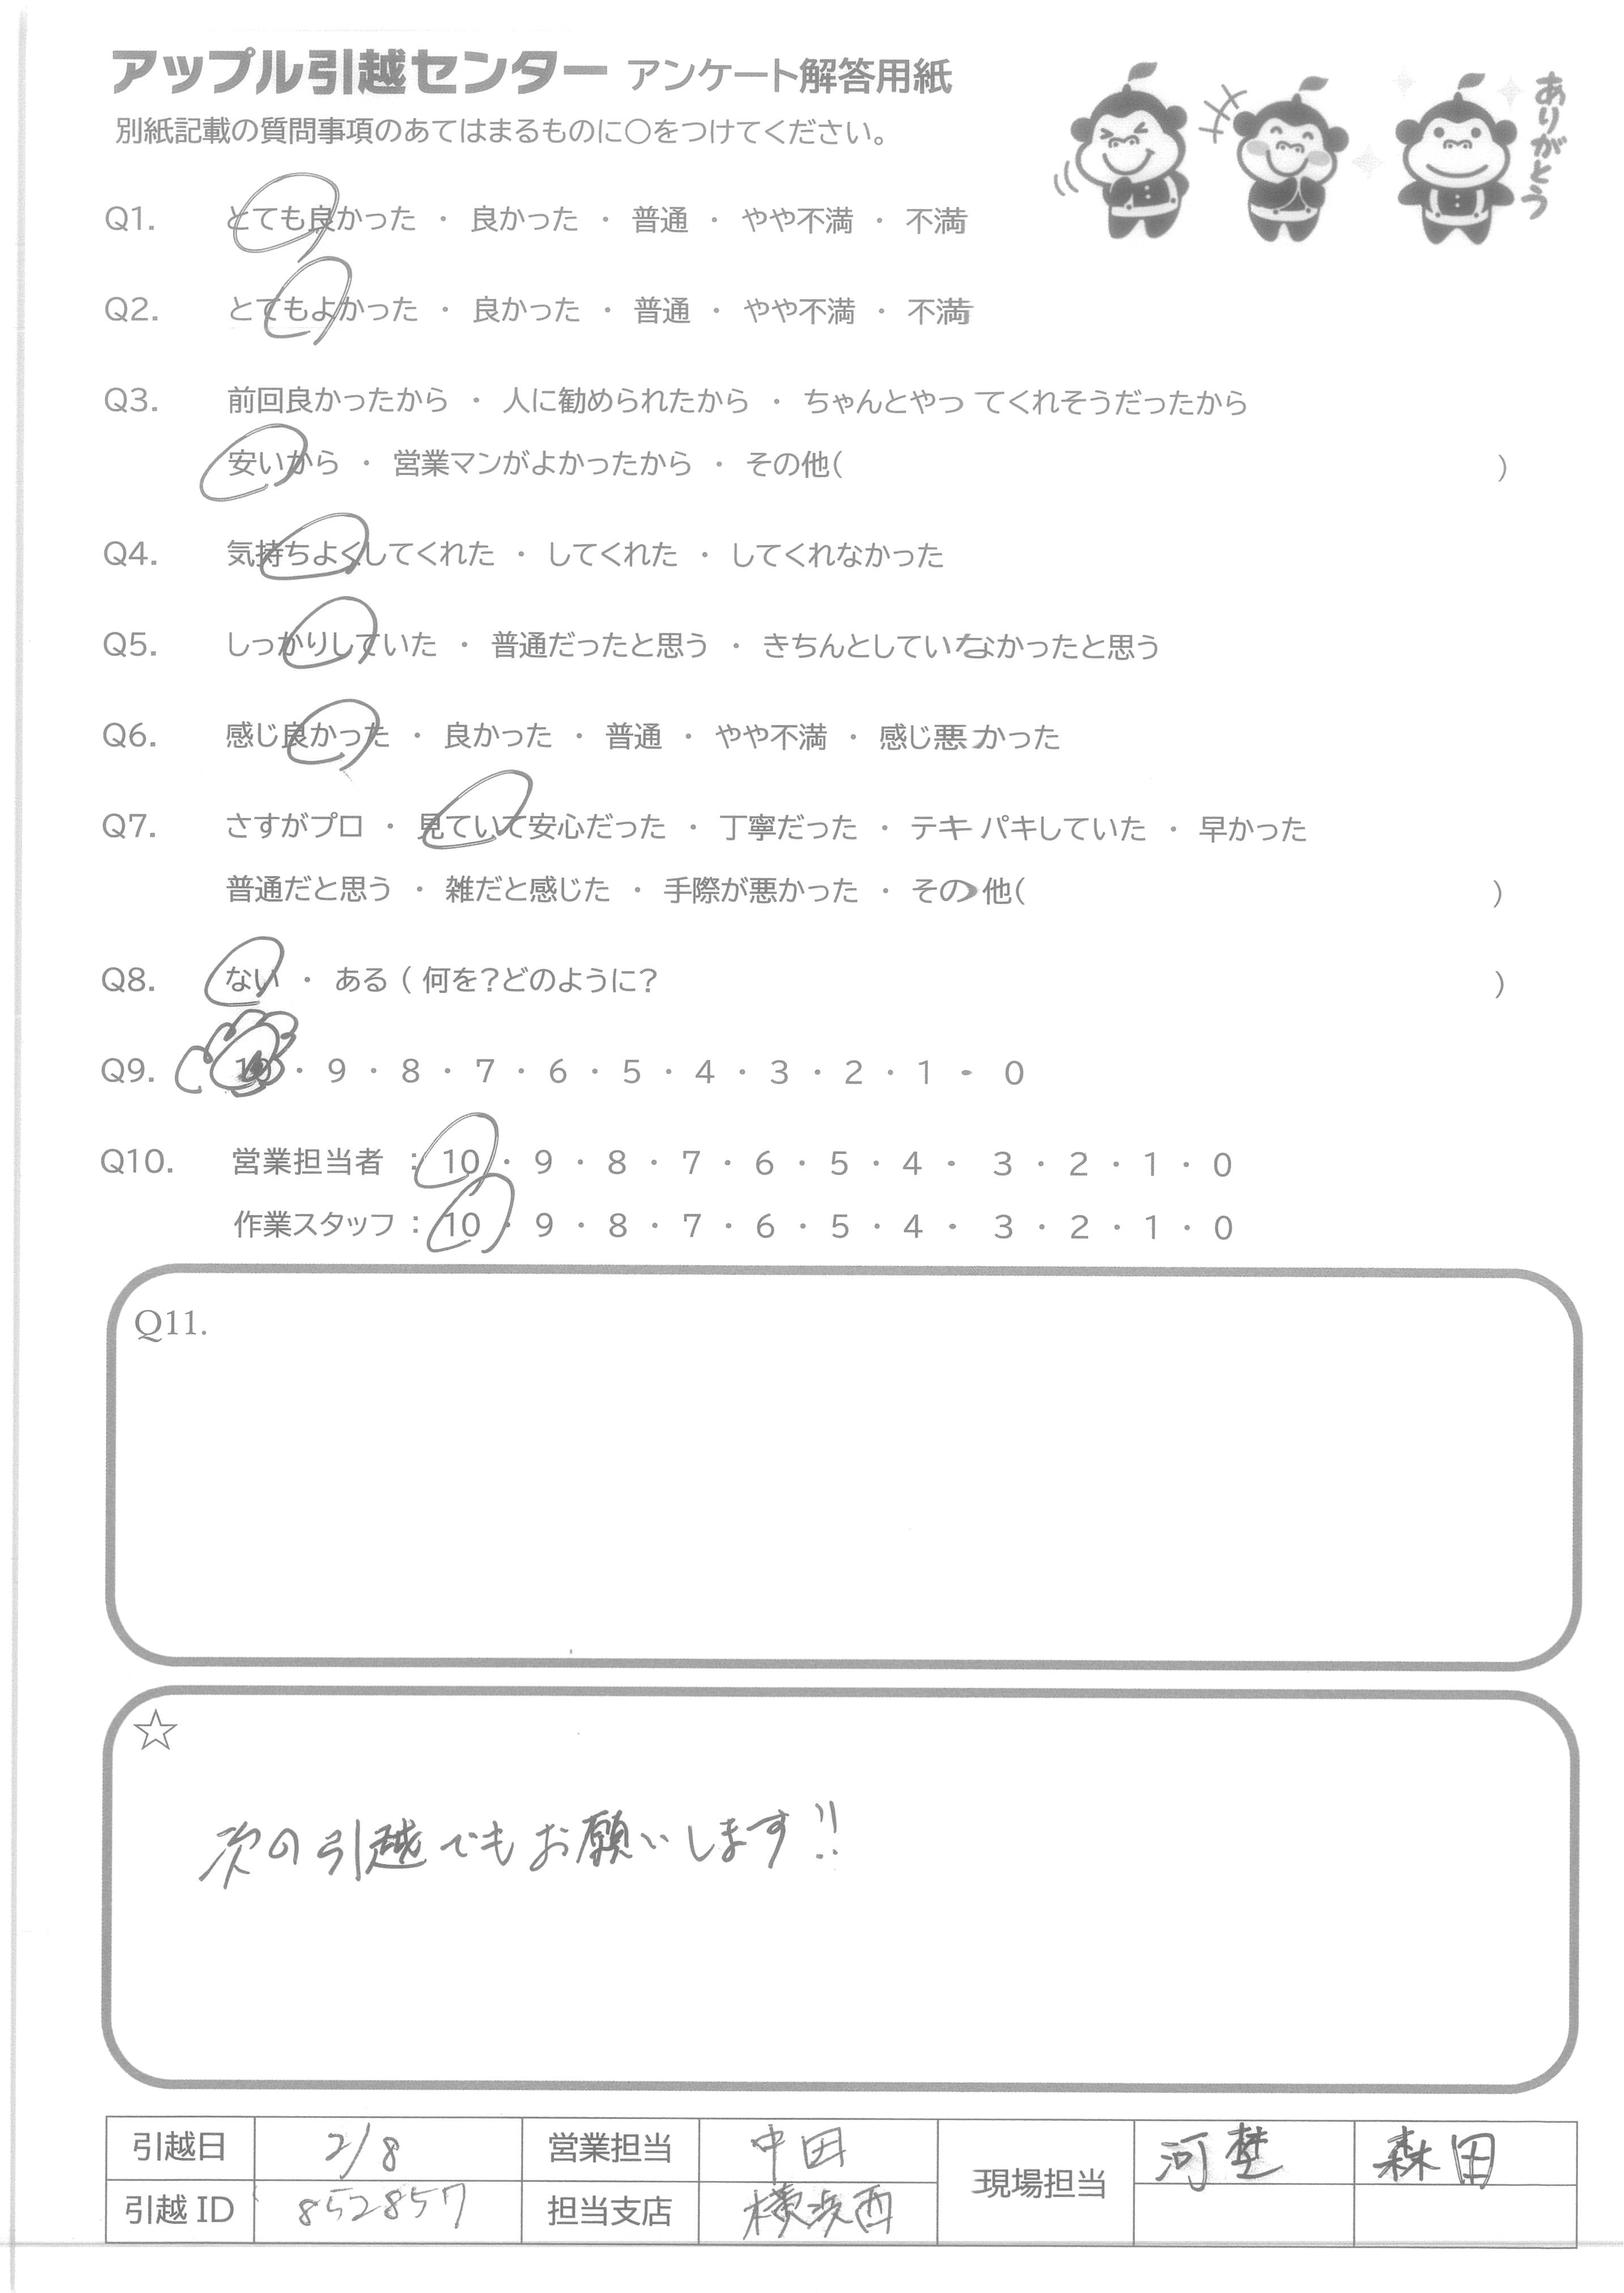 アップル引越センター アンケート解答用紙
別紙記載の質問事項のあてはまるものに○をつけてください。
ありがとう
Q1. とても良かった ・ 良かった ・ 普通 ・ やや不満 ・ 不満
Q2. とてもよかった ・ 良かった ・ 普通 ・ やや不満 ・ 不満
Q3. 前回良かったから ・ 人に勧められたから ・ ちゃんとやってくれそうだったから
安いから ・ 営業マンがよかったから ・ その他( )
Q4. 気持ちよくしてくれた ・ してくれた ・ してくれなかった
Q5. しっかりしていた ・ 普通だったと思う ・ きちんとしていなかったと思う
Q6. 感じ良かった ・ 良かった ・ 普通 ・ やや不満 ・ 感じ悪かった
Q7. さすがプロ ・ 見ていて安心だった ・ 丁寧だった ・ テキパキしていた ・ 早かった
普通だと思う ・ 雑だと感じた ・ 手際が悪かった ・ その他( )
Q8. ない ・ ある ( 何を?どのように? )
Q9. 10 ・ 9 ・ 8 ・ 7 ・ 6 ・ 5 ・ 4 ・ 3 ・ 2 ・ 1 ・ 0
Q10. 営業担当者 : 10 ・ 9 ・ 8 ・ 7 ・ 6 ・ 5 ・ 4 ・ 3 ・ 2 ・ 1 ・ 0
作業スタッフ : 10 ・ 9 ・ 8 ・ 7 ・ 6 ・ 5 ・ 4 ・ 3 ・ 2 ・ 1 ・ 0
Q11.
☆
次の引越でもお願いします!!
引越日 2/8 営業担当 中田 現場担当 河埜 森田
引越ID 852857 担当支店 横浜西